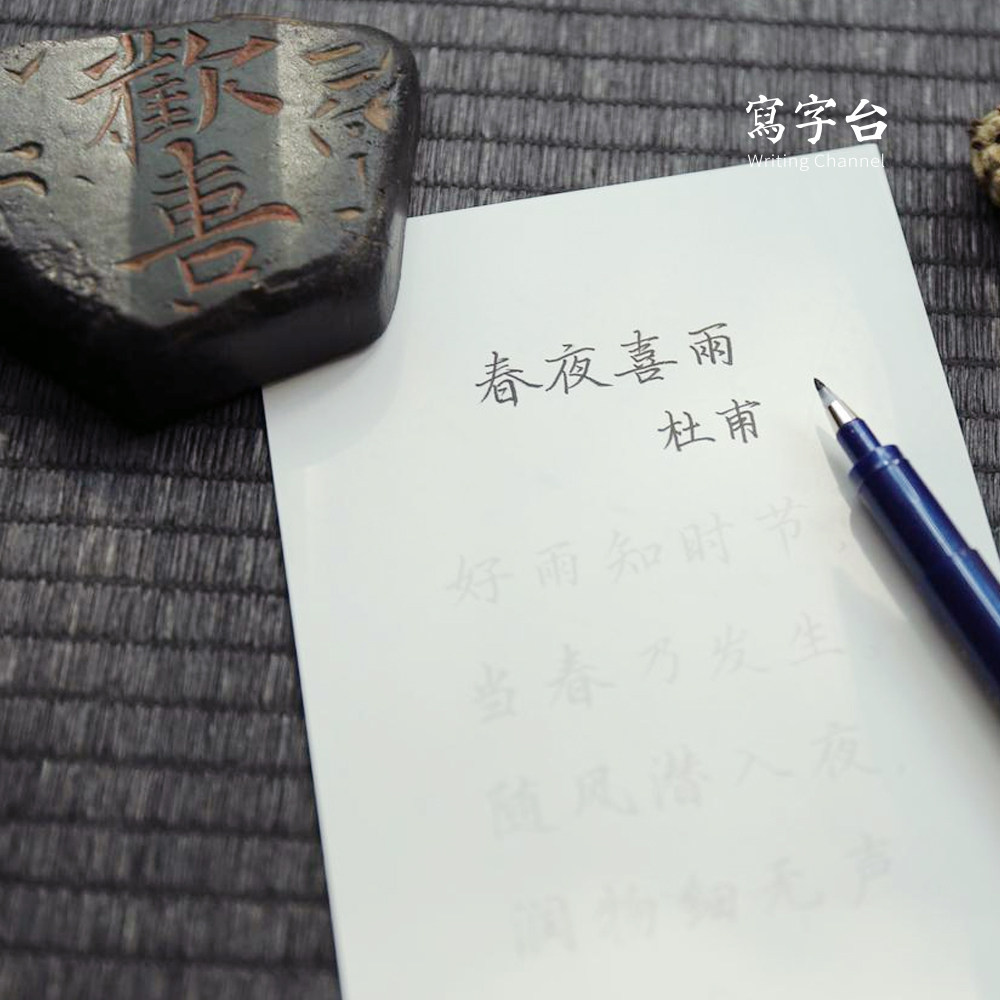 歡
喜
寫字台
Writing Channel
春夜喜雨
杜甫
好雨知时节
当春乃发生
随风潜入夜
润物细无声